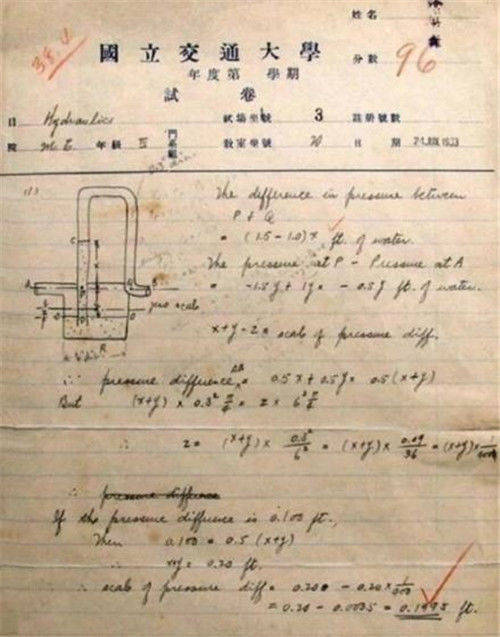 姓名
國立交通大學
38.4
年度第 學期
分數 96
試卷
目 Hydraulics 試場坐號 3 註册號數
院 M.E. 年級 IV 教室坐號 20 日期 24 JUN 1933
(1)
The difference in pressure between
P & Q
= (1.5 - 1.0)x ft. of water.
The pressure at P - Pressure at A
= -1.5y + 1y = -0.5y ft. of water.
C
A
B
zero scale
R
x+y-z = scale of pressure diff.
∴ pressure difference AB = 0.5x + 0.5y = 0.5(x+y)
But (x+y) × 0.3² π/4 = z × 6² π/4
∴ z = (x+y) × 0.3²/6² = (x+y) × 0.09/36 = (x+y) × 1/400
∴ pressure difference
If the pressure difference is 0.100 ft.,
Then 0.100 = 0.5 (x+y)
∴ x+y = 0.20 ft.
∴ scale of pressure diff = 0.200 - 0.20 × 1/400
= 0.20 - 0.0005 = 0.1995 ft.